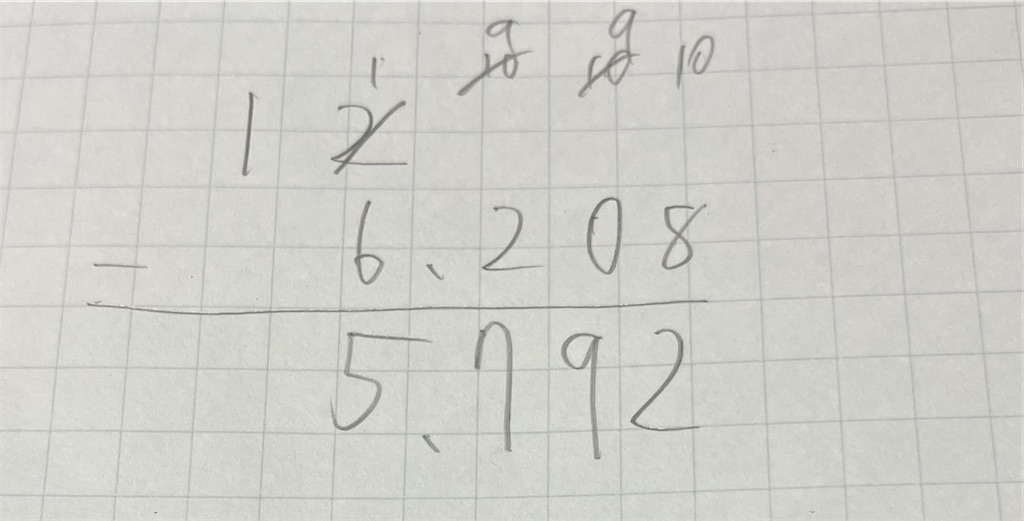 1 9 9
10 10 10
1 2
- 6.208
5.792